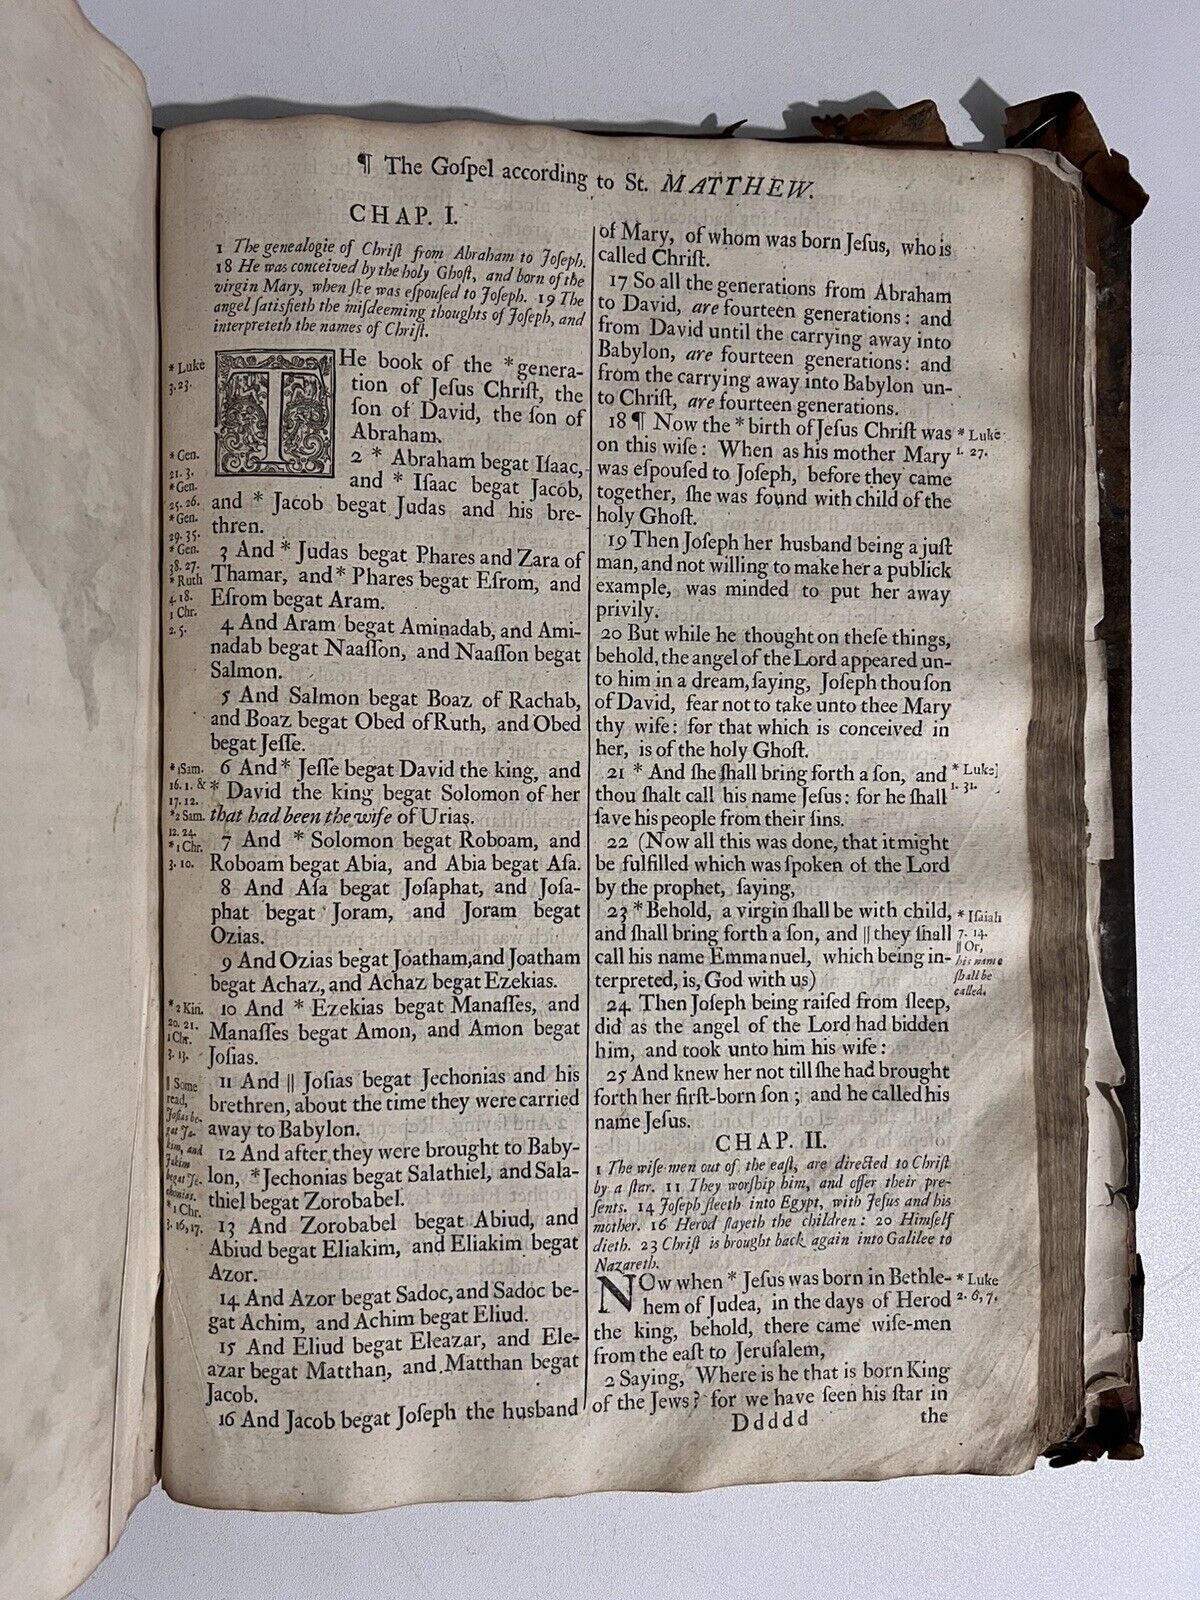 ¶ The Goſpel according to St. MATTHEW.
CHAP. I.
1 The genealogie of Chriſt from Abraham to Joſeph.
18 He was conceived by the holy Ghoſt, and born of the
virgin Mary, when ſhe was eſpouſed to Joſeph. 19 The
angel ſatisfieth the miſdeeming thoughts of Joſeph, and
interpreteth the names of Chriſt.
* Luke
3. 23.
THe book of the * genera-
tion of Jeſus Chriſt, the
ſon of David, the ſon of
Abraham.
* Gen.
21. 3.
* Gen.
25. 26.
* Gen.
29. 35.
2 * Abraham begat Iſaac,
and * Iſaac begat Jacob,
and * Jacob begat Judas and his bre-
thren.
* Gen.
38. 27.
* Ruth
4. 18.
1 Chr.
2. 5.
3 And * Judas begat Phares and Zara of
Thamar, and * Phares begat Eſrom, and
Eſrom begat Aram.
4 And Aram begat Aminadab, and Ami-
nadab begat Naaſſon, and Naaſſon begat
Salmon.
5 And Salmon begat Boaz of Rachab,
and Boaz begat Obed of Ruth, and Obed
begat Jeſſe.
* 1 Sam.
16. 1. &
17. 12.
* 2 Sam.
12. 24.
* 1 Chr.
3. 10.
6 And * Jeſſe begat David the king, and
* David the king begat Solomon of her
that had been the wife of Urias.
7 And * Solomon begat Roboam, and
Roboam begat Abia, and Abia begat Aſa.
8 And Aſa begat Joſaphat, and Joſa-
phat begat Joram, and Joram begat
Ozias.
9 And Ozias begat Joatham, and Joatham
begat Achaz, and Achaz begat Ezekias.
* 2 Kin.
20. 21.
1 Chr.
3. 13.
10 And * Ezekias begat Manaſſes, and
Manaſſes begat Amon, and Amon begat
Joſias.
|| Some
read,
Joſias be-
gat Ja-
kim, and
Jakim
begat Je-
chonias.
* 1 Chr.
3. 16, 17.
11 And || Joſias begat Jechonias and his
brethren, about the time they were carried
away to Babylon.
12 And after they were brought to Baby-
lon, * Jechonias begat Salathiel, and Sala-
thiel begat Zorobabel.
13 And Zorobabel begat Abiud, and
Abiud begat Eliakim, and Eliakim begat
Azor.
14 And Azor begat Sadoc, and Sadoc be-
gat Achim, and Achim begat Eliud.
15 And Eliud begat Eleazar, and Ele-
azar begat Matthan, and Matthan begat
Jacob.
16 And Jacob begat Joſeph the husband
of Mary, of whom was born Jeſus, who is
called Chriſt.
17 So all the generations from Abraham
to David, are fourteen generations: and
from David until the carrying away into
Babylon, are fourteen generations: and
from the carrying away into Babylon un-
to Chriſt, are fourteen generations.
18 ¶ Now the * birth of Jeſus Chriſt was
on this wiſe: When as his mother Mary
was eſpouſed to Joſeph, before they came
together, ſhe was found with child of the
holy Ghoſt.
* Luke
1. 27.
19 Then Joſeph her husband being a juſt
man, and not willing to make her a publick
example, was minded to put her away
privily.
20 But while he thought on theſe things,
behold, the angel of the Lord appeared un-
to him in a dream, ſaying, Joſeph thou ſon
of David, fear not to take unto thee Mary
thy wife: for that which is conceived in
her, is of the holy Ghoſt.
21 * And ſhe ſhall bring forth a ſon, and
thou ſhalt call his name Jeſus: for he ſhall
ſave his people from their ſins.
* Luke
1. 31.
22 (Now all this was done, that it might
be fulfilled which was ſpoken of the Lord
by the prophet, ſaying,
23 * Behold, a virgin ſhall be with child,
and ſhall bring forth a ſon, and || they ſhall
call his name Emmanuel, which being in-
terpreted, is, God with us)
* Iſaiah
7. 14.
|| Or,
his name
ſhall be
called.
24 Then Joſeph being raiſed from ſleep,
did as the angel of the Lord had bidden
him, and took unto him his wife:
25 And knew her not till ſhe had brought
forth her firſt-born ſon; and he called his
name Jeſus.
CHAP. II.
1 The wiſe men out of the eaſt, are directed to Chriſt
by a ſtar. 11 They worſhip him, and offer their pre-
ſents. 14 Joſeph fleeth into Egypt, with Jeſus and his
mother. 16 Herod ſlayeth the children: 20 Himſelf
dieth. 23 Chriſt is brought back again into Galilee to
Nazareth.
NOw when * Jeſus was born in Bethle-
hem of Judea, in the days of Herod
the king, behold, there came wiſe-men
from the eaſt to Jeruſalem,
* Luke
2. 6, 7.
2 Saying, Where is he that is born King
of the Jews? for we have ſeen his ſtar in
Ddddd
the